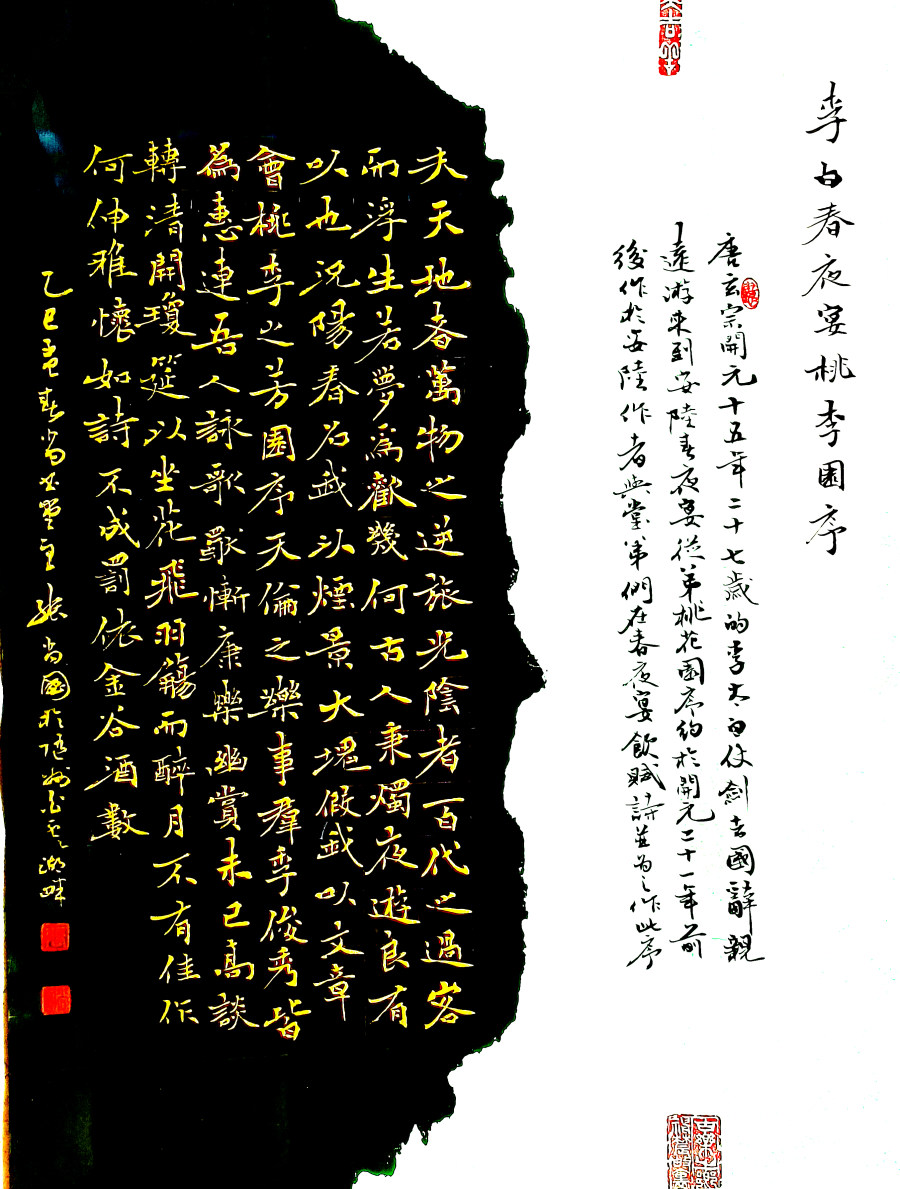 李白春夜宴桃李園序
唐玄宗開元十五年二十七歲的李太白仗劍去國辭親
遠游來到安陸春夜宴從弟桃花園序約於開元二十一年前
後作於安陸作者與堂弟們在春夜宴飲賦詩並為之作此序
夫天地者萬物之逆旅光陰者百代之過客
而浮生若夢為歡幾何古人秉燭夜遊良有
以也況陽春召我以煙景大塊假我以文章
會桃李之芳園序天倫之樂事羣季俊秀皆
為惠連吾人詠歌獨慚康樂幽賞未已高談
轉清開瓊筵以坐花飛羽觴而醉月不有佳作
何伸雅懷如詩不成罰依金谷酒數
乙巳孟春尚書堂主張尚國於隨州白雲湖畔